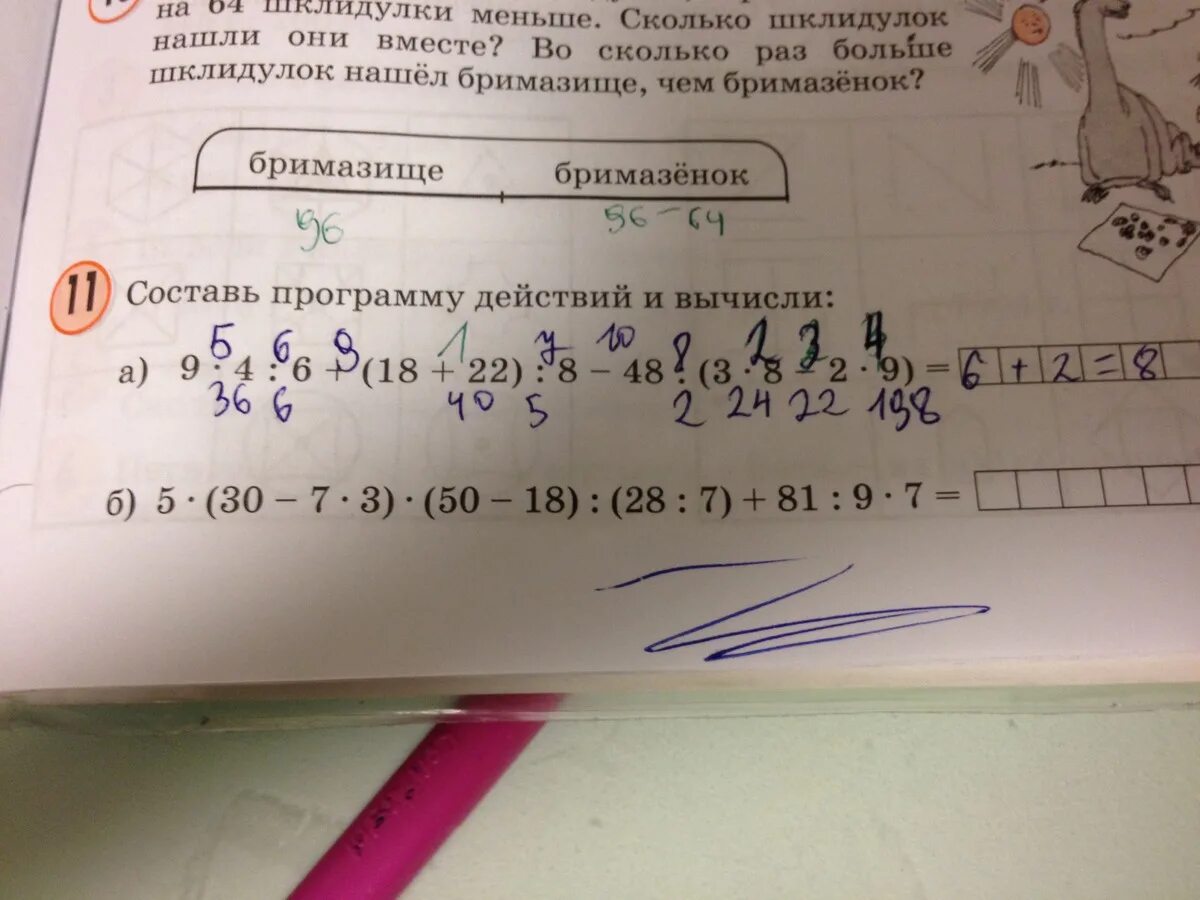 на 64 шклидулки меньше. Сколько шклидулок
нашли они вместе? Во сколько раз больше
шклидулок нашёл бримазище, чем бримазёнок?
бримазище бримазёнок
96 96 - 64
11 Составь программу действий и вычисли:
5 6 9 1 7 10 8 2 3 4
а) 9 · 4 : 6 + (18 + 22) : 8 – 48 : (3 · 8 – 2 · 9) = 6 + 2 = 8
36 6 40 5 2 24 22 198
б) 5 · (30 – 7 · 3) · (50 – 18) : (28 : 7) + 81 : 9 · 7 =